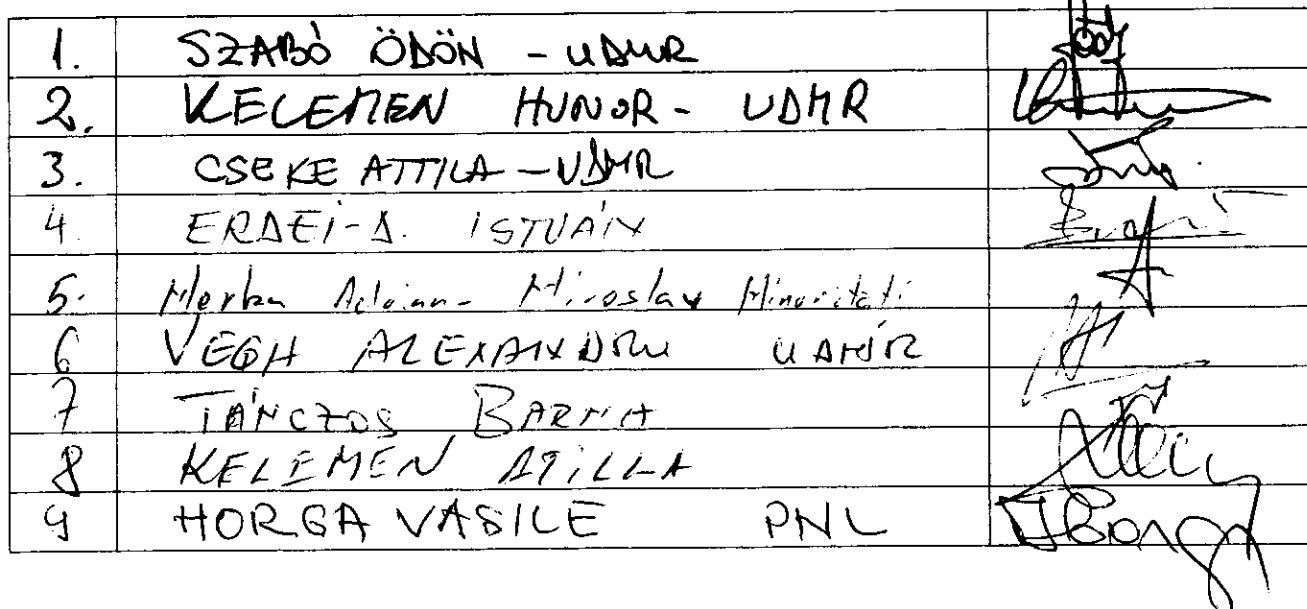 1. SZABÓ ÖDÖN - UDMR
2. KELEMEN HUNOR - UDMR
3. CSEKE ATTILA - UDMR
4. ERDEI-D. ISTVÁN
5. Merka Adrian- Miroslav Minoritati
6 VEGH ALEXANDRU UDMR
7 TÁNCZOS BARNA
8 KELEMEN ATILLA
9 HORGA VASILE PNL